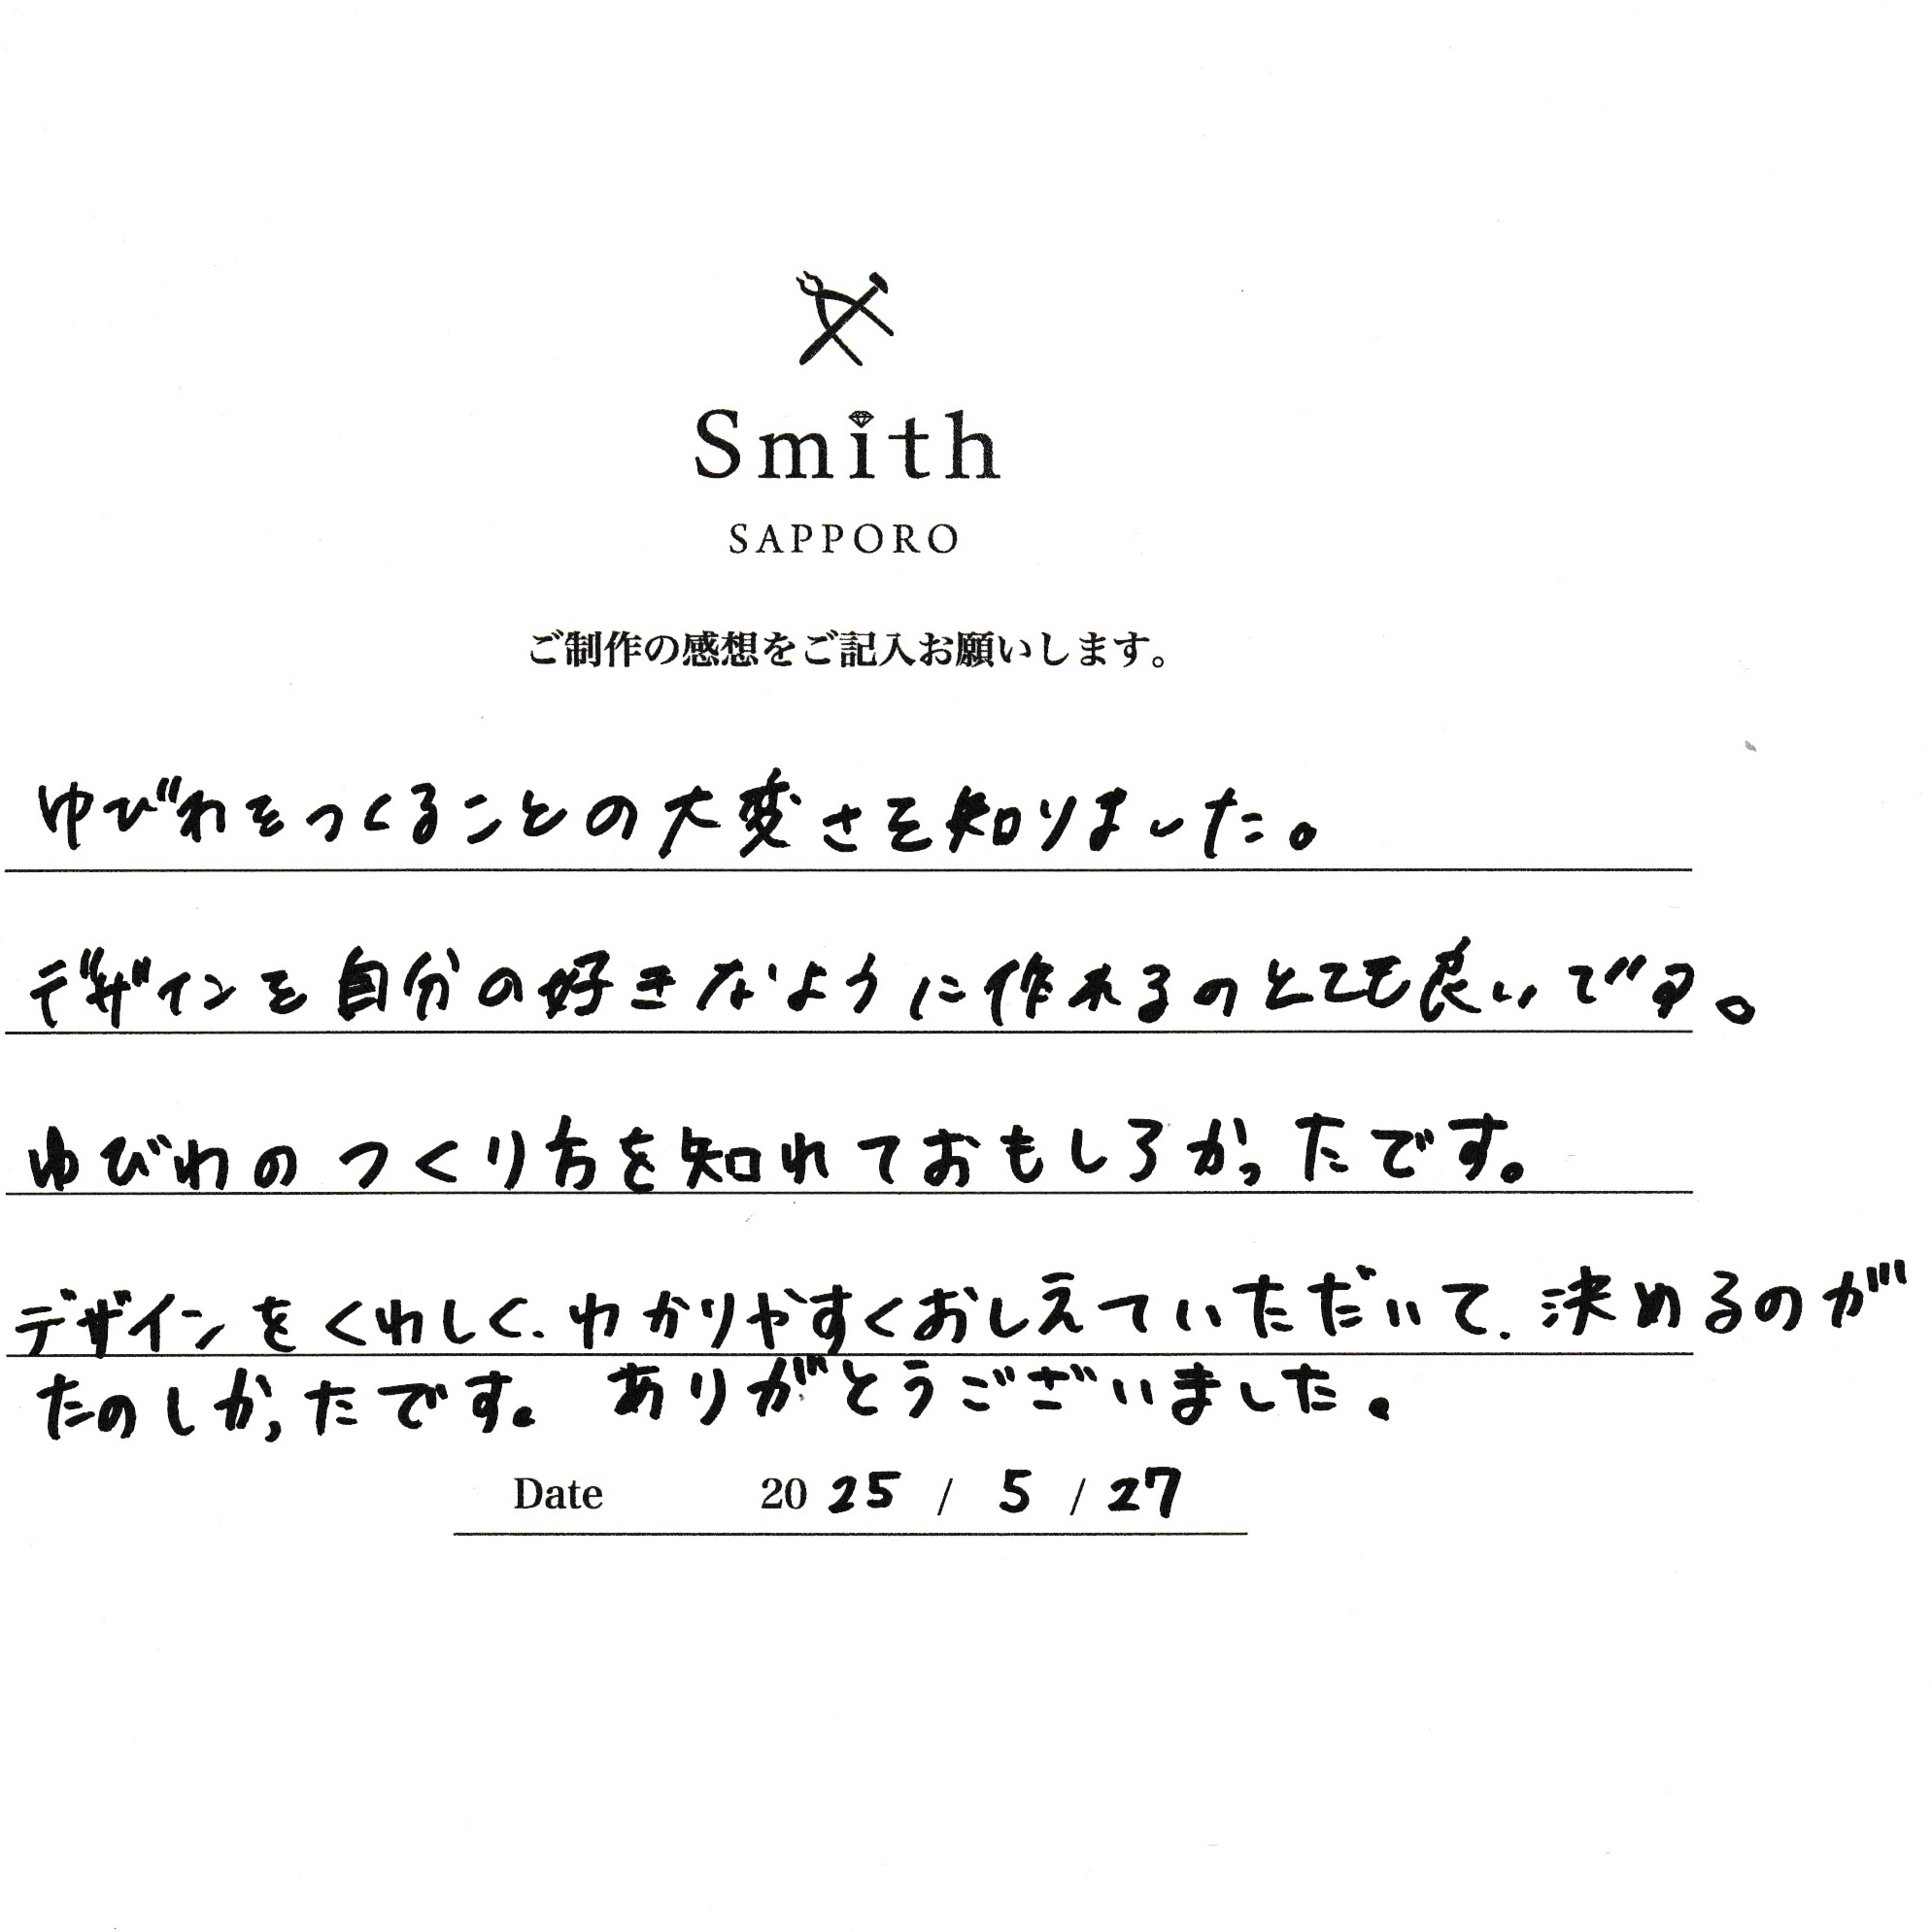 Smith
SAPPORO
ご制作の感想をご記入お願いします。
ゆびわをつくることの大変さを知りました。
デザインを自分の好きなように作れるのとても良いです。
ゆびわのつくり方を知れておもしろかったです。
デザインをくわしく、わかりやすくおしえていただいて、決めるのが
たのしかったです。ありがとうございました。
Date 2025 / 5 / 27